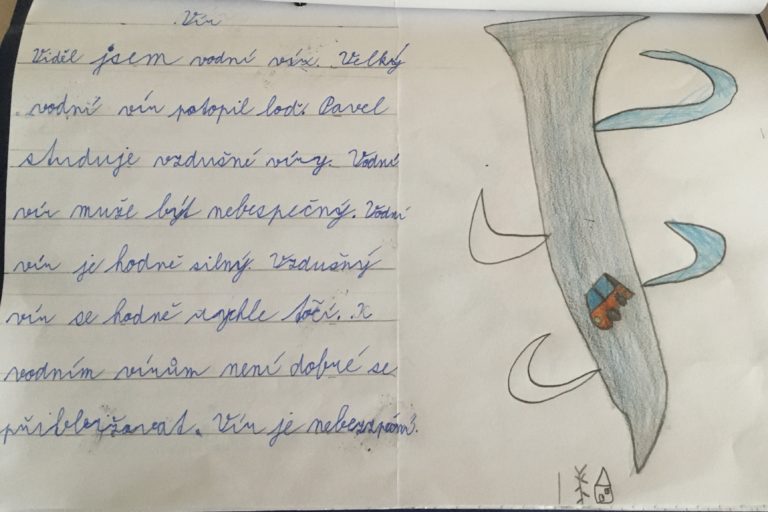 Vír
Viděl jsem vodní vír. Velký
vodní vír potopil loď. Pavel
studuje vzdušné víry. Vodní
vír muže být nebezpečný. Vodní
vír je hodně silný. Vzdušný
vír se hodně rychle točí. K
vodním vírům není dobré se
přibližovat. Vír je